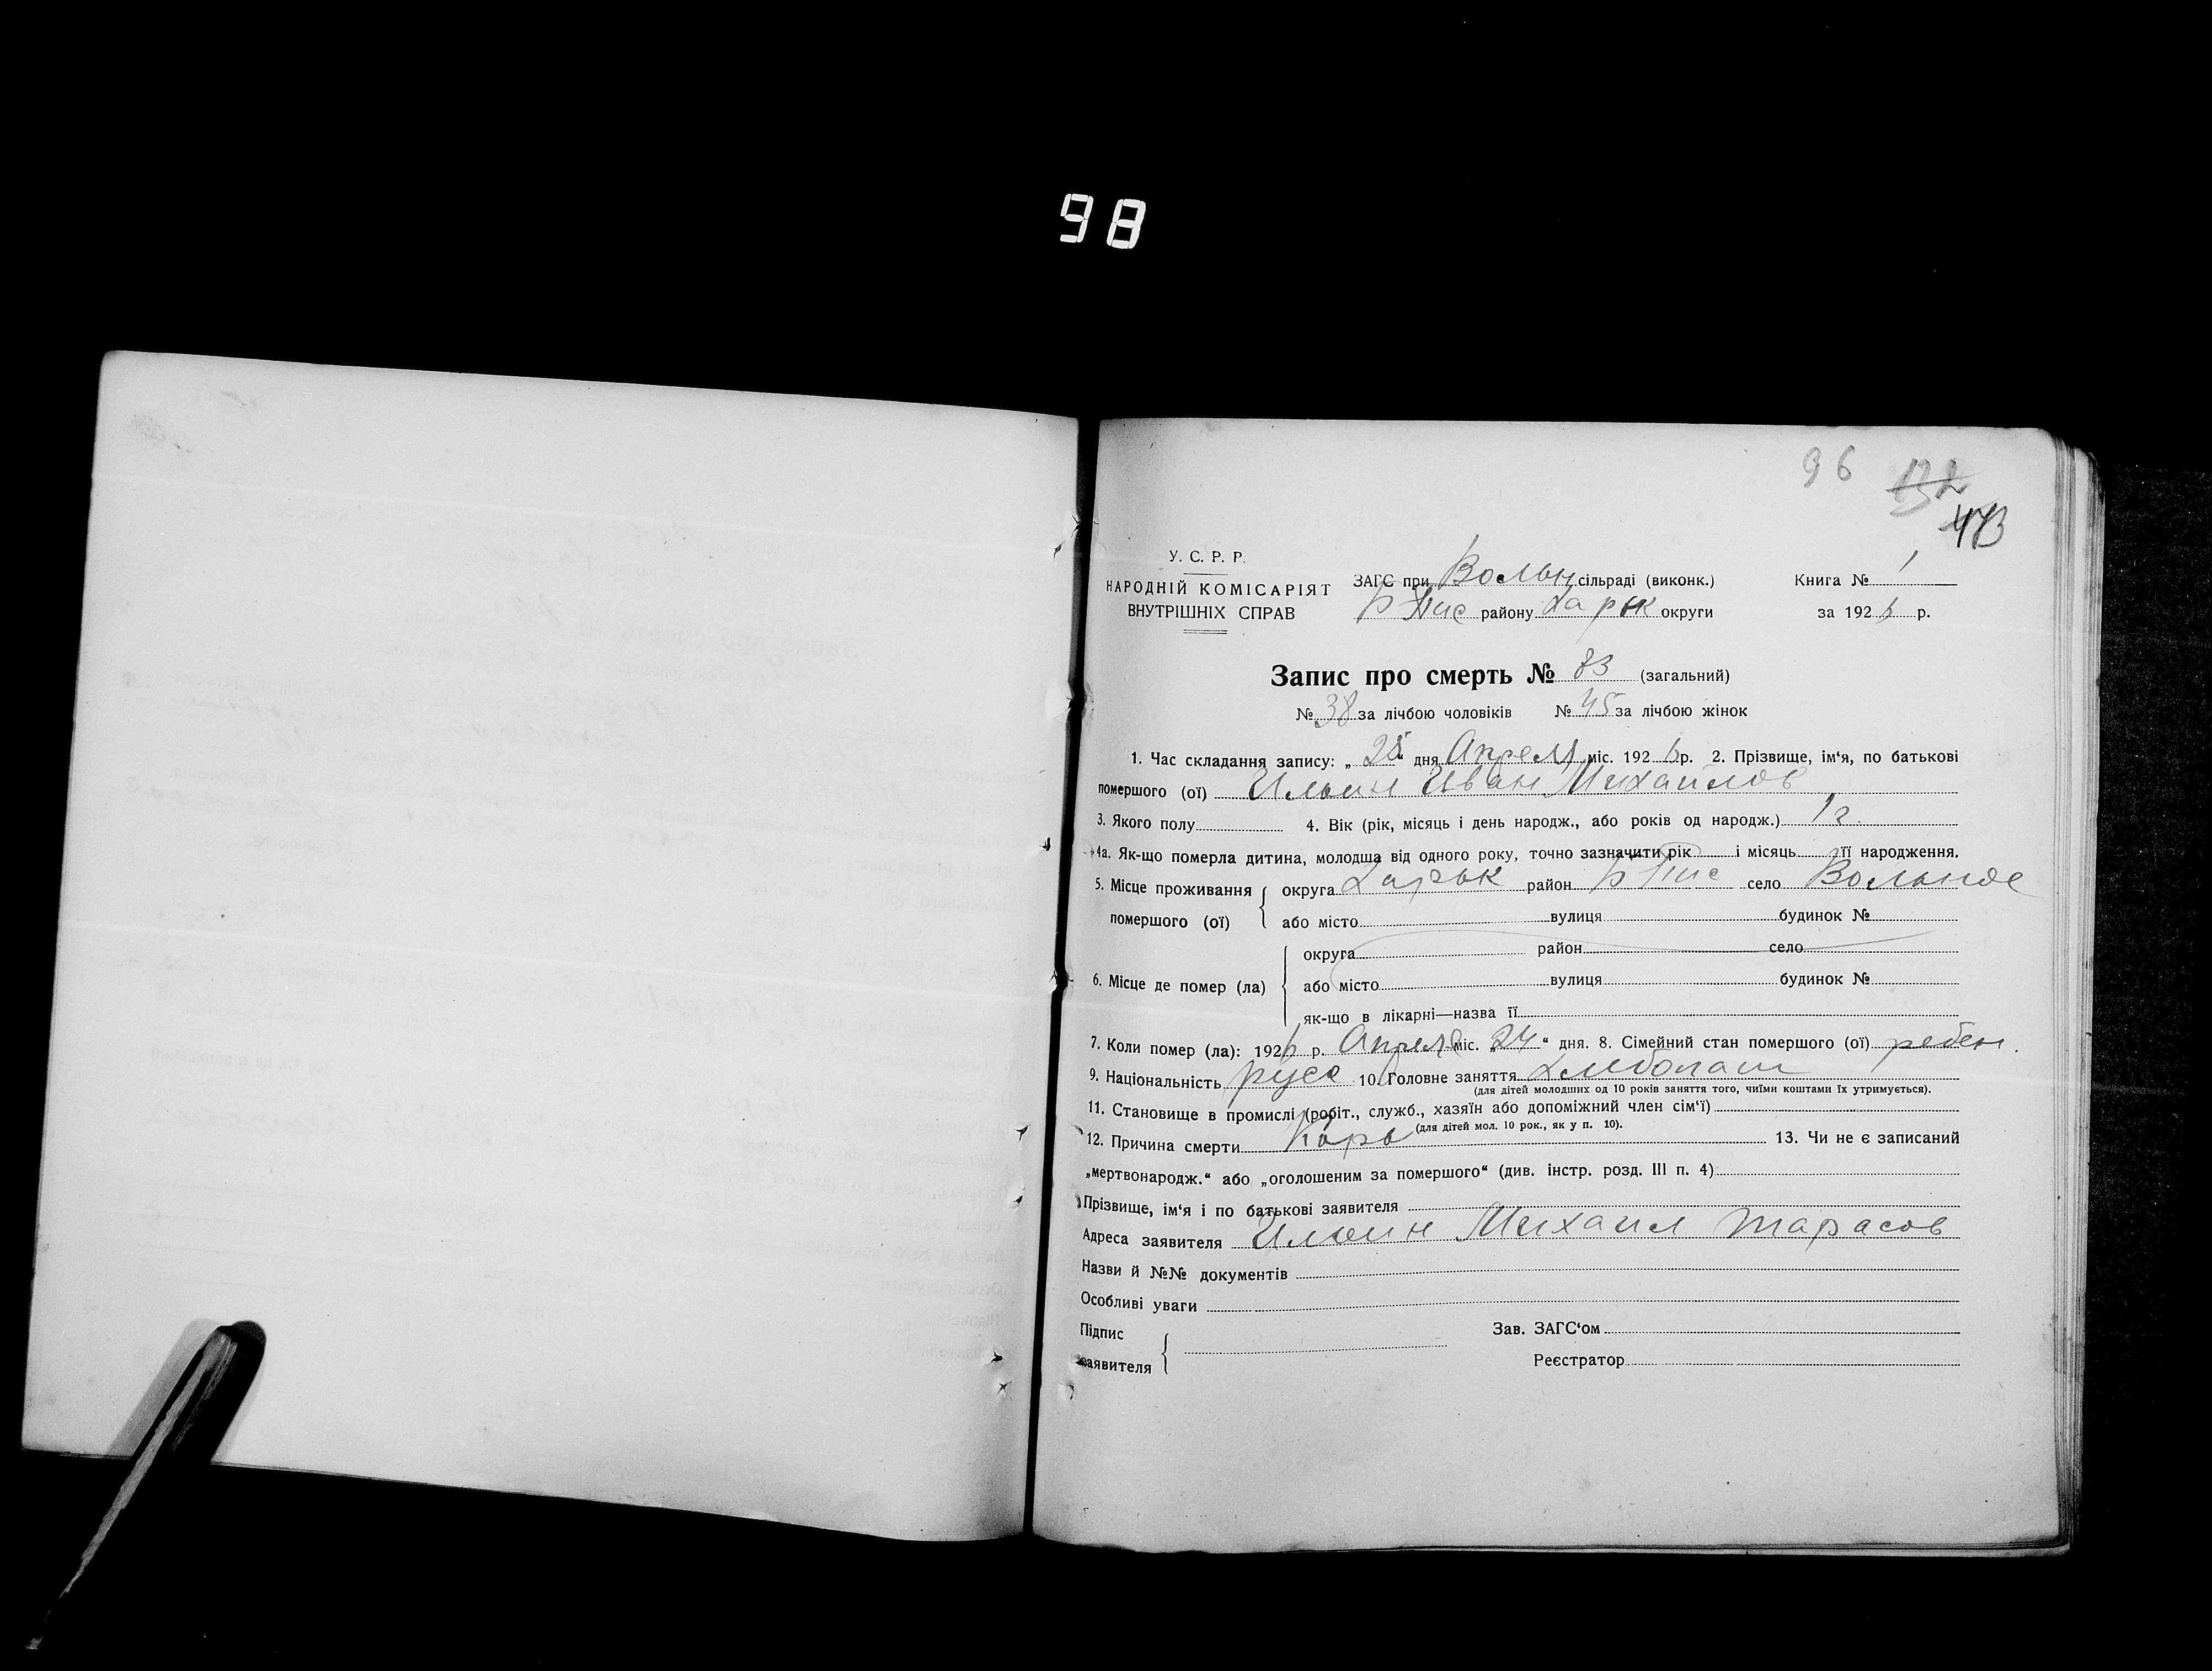 98
96 132
473
У. С. Р. Р.
НАРОДНІЙ КОМІСАРІЯТ
ВНУТРІШНІХ СПРАВ
ЗАГС при Вольн сільраді (виконк.)
Б Пис району Харьк округи
Книга № 1
за 1926 р.
Запис про смерть № 83 (загальний)
№ 38 за лічбою чоловіків № 45 за лічбою жінок
1. Час складання запису: „ 28 “ дня Апреля міс. 1926 р. 2. Прізвище, ім‘я, по батькові
помершого (ої) Ильин Иван Михайлов
3. Якого полу 4. Вік (рік, місяць і день народж., або років од народж.) 1 г.
4а. Як-що померла дитина, молодша від одного року, точно зазначити рік і місяць її народження.
5. Місце проживання помершого (ої) { округа Харьк район Б Пис село Вольное
або місто вулиця будинок №
6. Місце де помер (ла) { округа район село
або місто вулиця будинок №
як-що в лікарні—назва її
7. Коли помер (ла): 1926 р. Апреля міс. „24“ дня. 8. Сімейний стан помершого (ої) ребен.
9. Національність русс 10. Головне заняття хлебопаш
(для дітей молодших од 10 років заняття того, чиїми коштами їх утримується).
11. Становище в промислі (робіт., служб., хазяїн або допоміжний член сім‘ї)
(для дітей мол. 10 рок., як у п. 10).
12. Причина смерти Корь 13. Чи не є записаний
„мертвонародж.“ або „оголошеним за помершого“ (див. інстр. розд. III п. 4)
Прізвище, ім‘я і по батькові заявителя
Адреса заявителя Ильин Михаил Тарасов
Назви й №№ документів
Особливі уваги
Підпис заявителя {
Зав. ЗАГС‘ом
Реєстратор